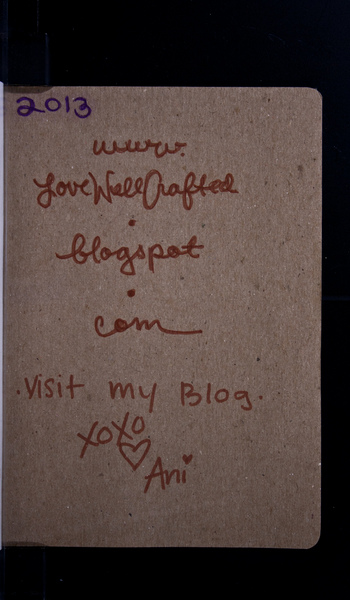 2013
www.
LoveWellCrafted
.
blogspot
.
com
.visit my Blog.
xoxo
♡ Ani